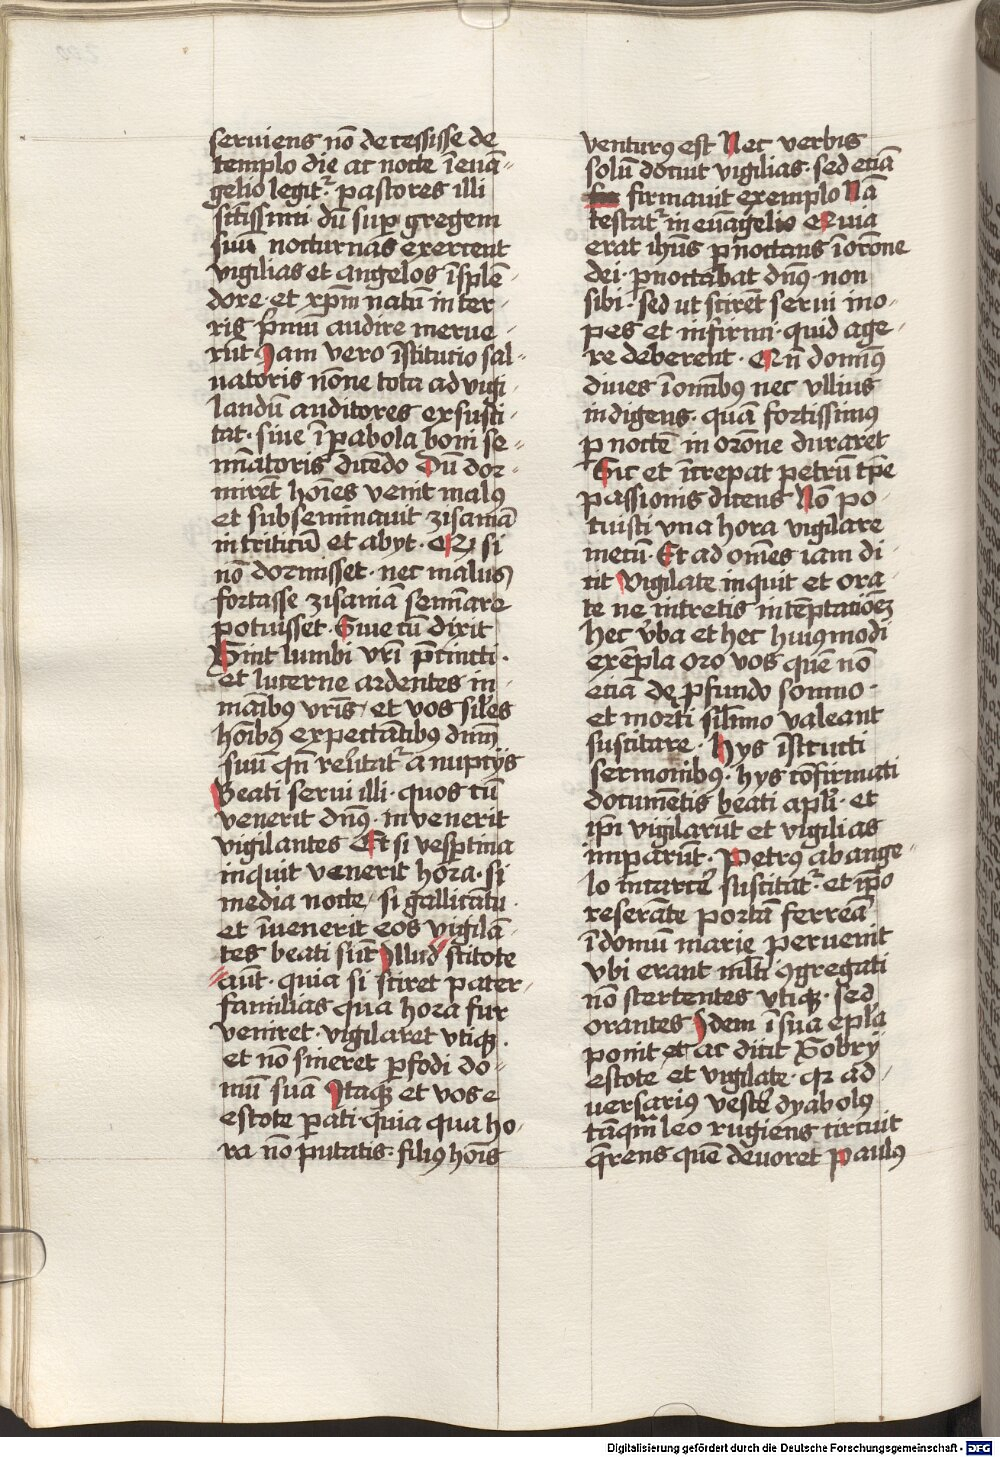 seruiens nō decessisse de
templo die ac nocte ī euā-
gelio legit᷑ · pastores illi
sc̄issimi · dū sup gregem
suū nocturnas exercent
vigilias et angelos ī splē-
dore · et xp̄m natū in ter-
ris p̄mū audire merue-
rūt Jam vero īstitutio sal-
uatoris nōne tota ad vigi-
landū auditores exsusci-
tat · siue ī pabola boni se-
mīatoris dicēdo Dū dor-
mirēt hoīes venit malus
et subseminauit zisaniā
in triticū et abyt · Et si
nō dormisset · nec malus
fortasse zisaniā semīare
potuisset · Siue cū dixit
Sint lumbi vr̄i p̄cincti ·
et lucerne ardentes in
manibꝰ vr̄is / et vos siles
hoībꝰ expectātibꝰ dnm̄
suū qn̄ reūtat᷑ a nuptijs
Beati serui illi · quos cū
venerit dn̄s · inuenerit
vigilantes Et si vesptina
inquit venerit hora · si
media nocte / si gallicātu ·
et īuenerit eos vigilā-
tes beati sūt Illud scitote
aūt · quia si sciret pater-
familias qua hora fur
veniret · vigilaret vtiqꝫ ·
et nō sineret pfodi do-
mū suā Itaqꝫ et vos e
estote pati quia qua ho-
ra nō putatis · filiꝰ hoīs
venturꝰ est Nec verbis
solū docuit vigilias · sed etiā
firmauit exemplo Nā
testat᷑ in euāgelio Quia
erat ihūs pnoctans ī orōne
dei · pnoctabat dn̄s · non
sibi · sed ut scirēt serui ino-
pes et infirmi · quid age-
re deberent · Qn̄ domīꝰ
diues ī omībꝰ nec vllius
indigens · quā fortissimꝰ
p noctē in orōne duraret
Sic et īcrepat petrū tp̄e
passionis dicens Nō po-
tuisti vna hora vigilare
mecū · Et ad omēs iam di-
cit Vigilate inquit et ora-
te ne intretis in tēptationeꝫ
hec v̄ba et hec huiꝰmodi
exēpla oro vos quē nō
etiā de pfundo somno ·
et morti sil̄imo valeant
suscitare · Hys īstructi
sermonibꝰ · hys cōfirmati
documētis beati apl̄i · et
ip̄i vigilarūt et vigilias
imparūt · Petrꝰ ab ange-
lo in carcē suscitat᷑ · et ip̄o
reserāte portā ferreā
ī domū marie peruenit
vbi erant ml̄ti ꝯgregati
nō stertentes vtiqꝫ · sed
orantes Idem ī sua epl̄a
ponit et ac dicit Sobrij
estote et vigilate · qꝛ ad-
uersariꝰ vestē dyabolꝰ
tāqm̄ leo rugiens circuit
q̄rens quē deuoret Paulꝰ
Digitalisierung gefördert durch die Deutsche Forschungsgemeinschaft - DFG